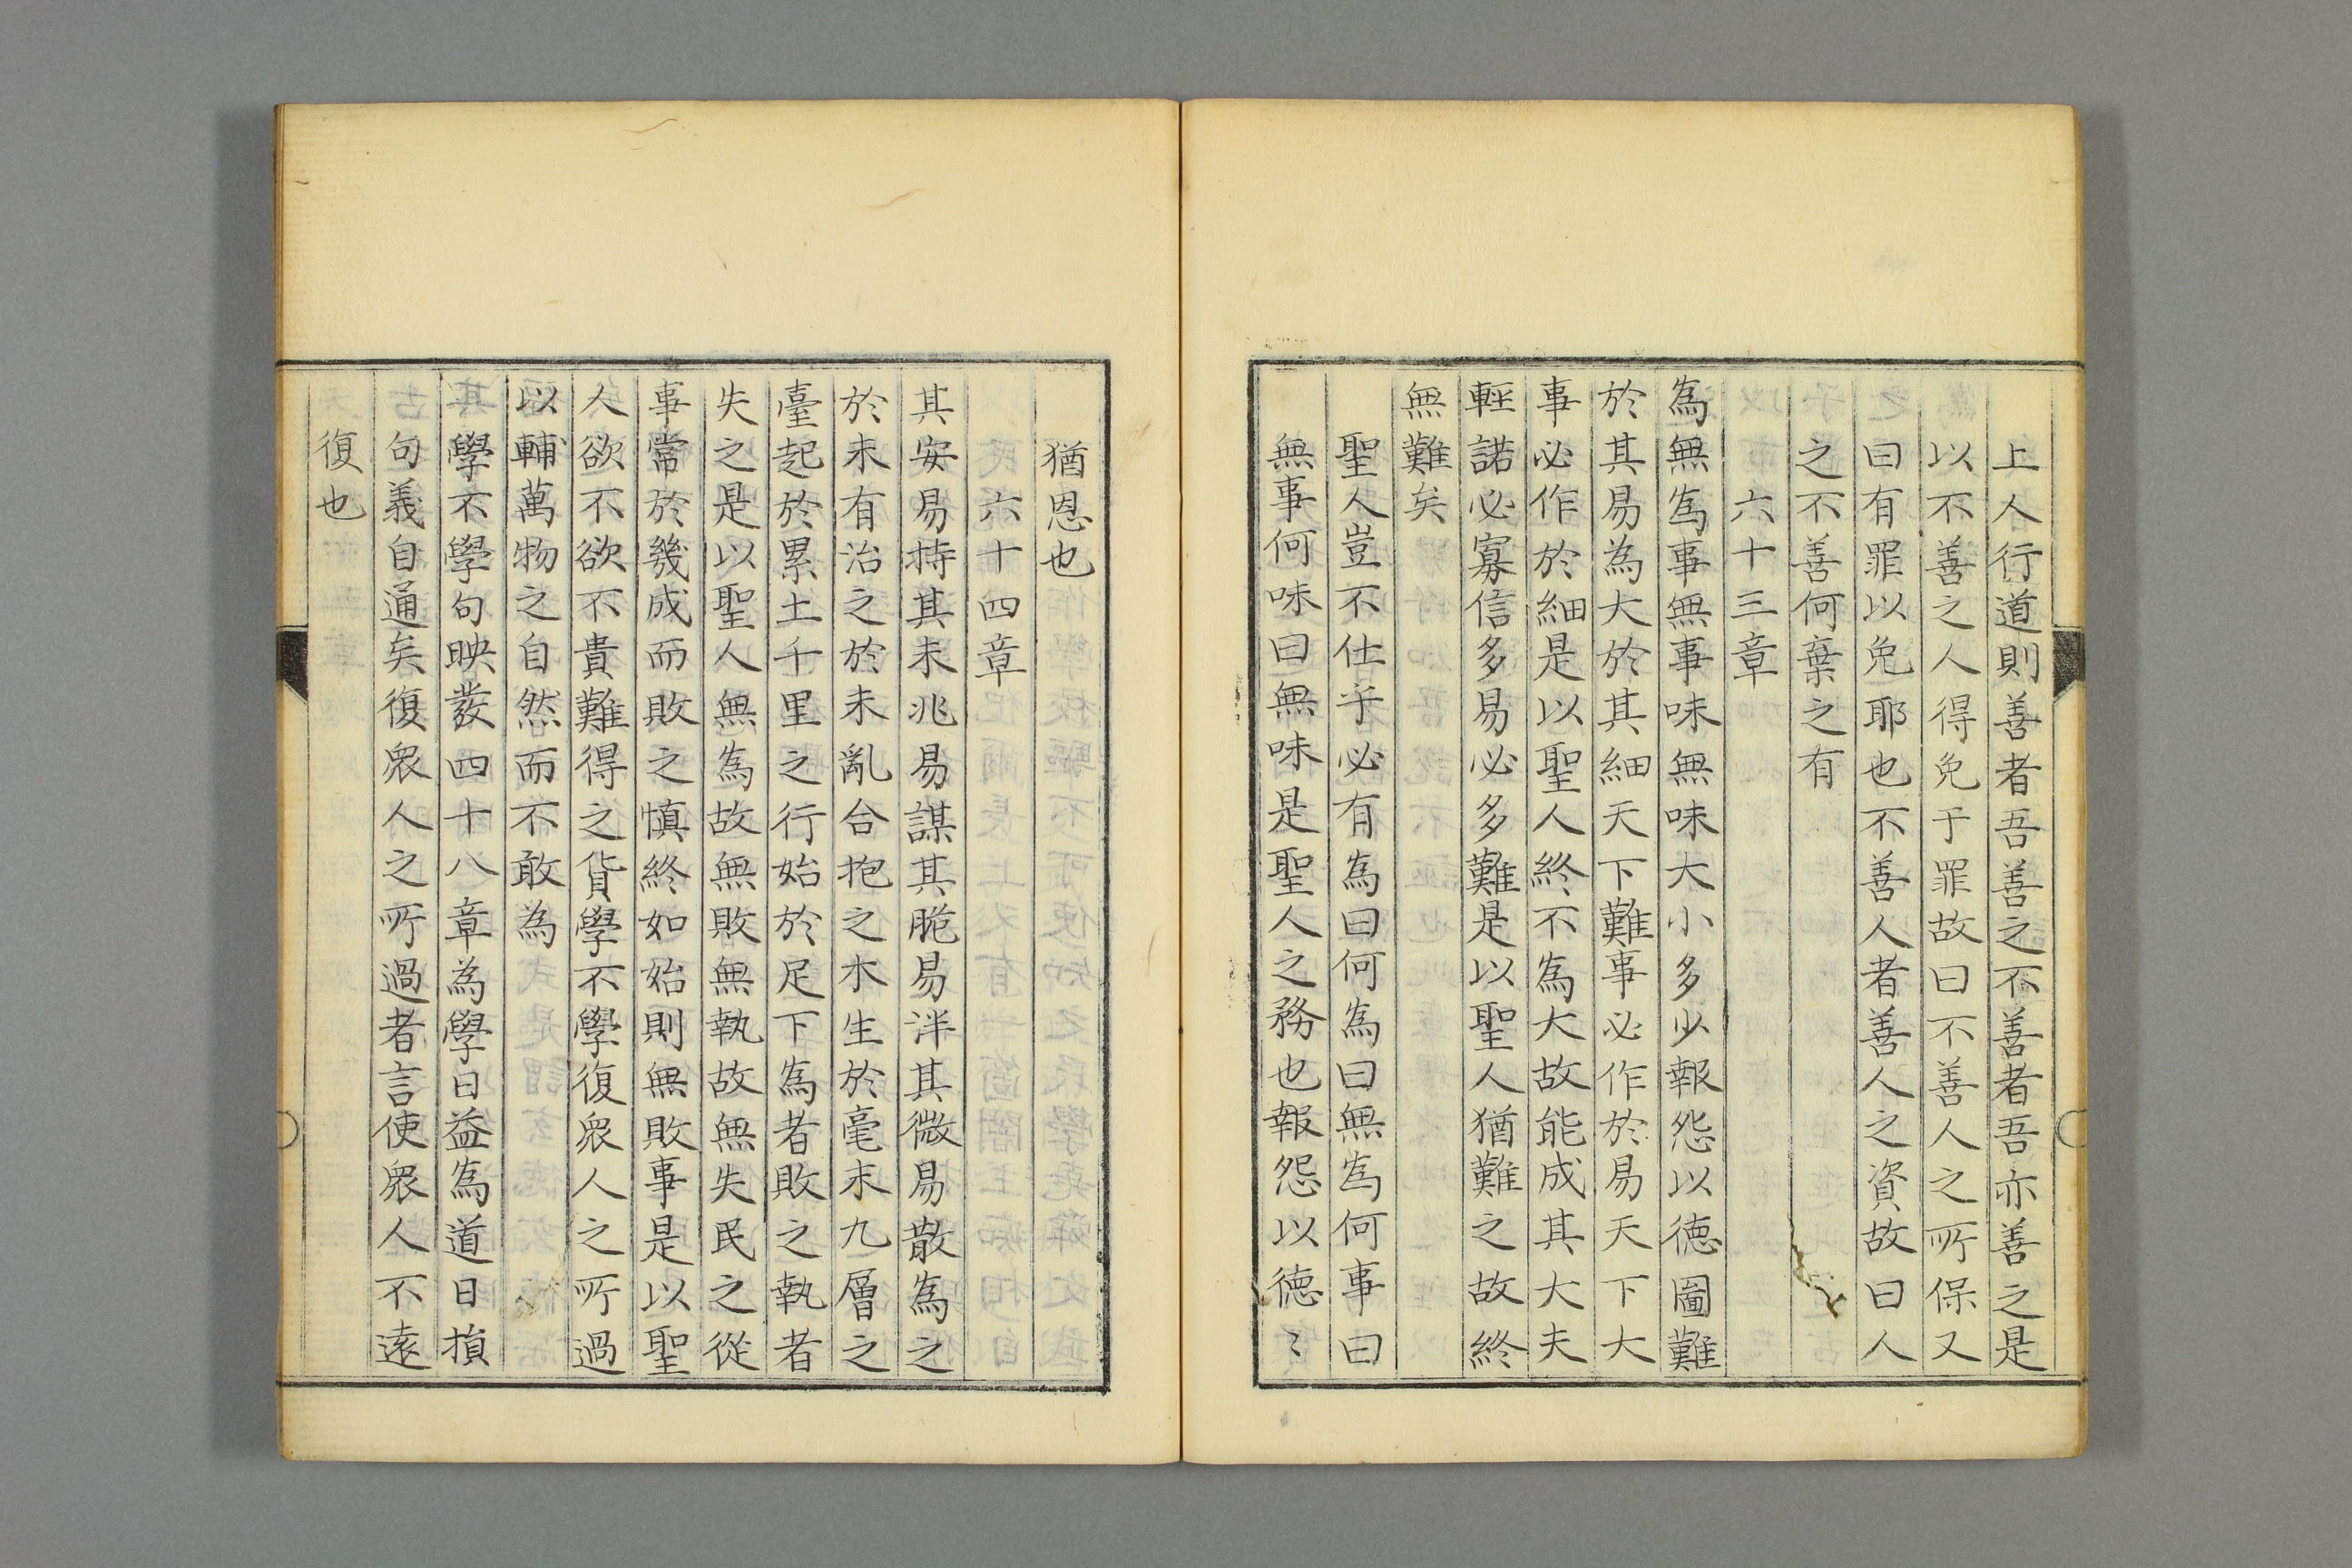 上人行道則善者吾善之不善者吾亦善之是
以不善之人得免于罪故曰不善人之所保又
曰有罪以免耶也不善人者善人之資故曰人
之不善何棄之有
六十三章
為無為事無事味無味大小多少報怨以德圖難
於其易為大於其細天下難事必作於易天下大
事必作於細是以聖人終不為大故能成其大夫
輕諾必寡信多易必多難是以聖人猶難之故終
無難矣
聖人豈不仕乎必有為曰何為曰無為何事曰
無事何味曰無味是聖人之務也報怨以德〻
猶恩也
六十四章
其安易持其未兆易謀其脆易泮其微易散為之
於未有治之於未亂合抱之木生於毫末九層之
臺起於累土千里之行始於足下為者敗之執者
失之是以聖人無為故無敗無執故無失民之從
事常於幾成而敗之慎終如始則無敗事是以聖
人欲不欲不貴難得之貨學不學復衆人之所過
以輔萬物之自然而不敢為
學不學句映發四十八章為學日益為道日損
句義自通矣復衆人之所過者言使衆人不遠
復也